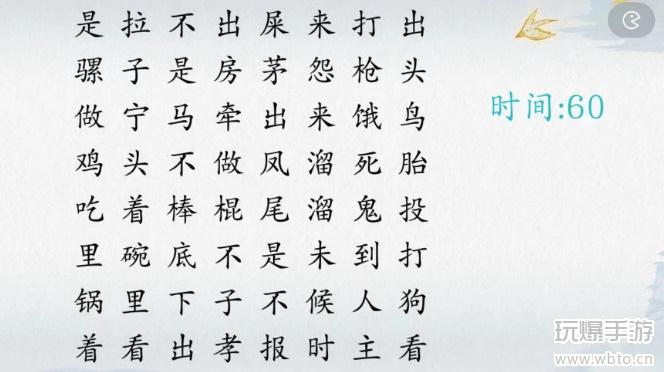 是拉不出屎来打出
骡子是房茅怨枪头
做宁马牵出来饿鸟
鸡头不做凤溜死胎
吃着棒棍尾溜鬼投
里碗底不是未到打
锅里下子不候人狗
着看出孝报时主看
时间:60
玩爆手游
www.wbto.cn